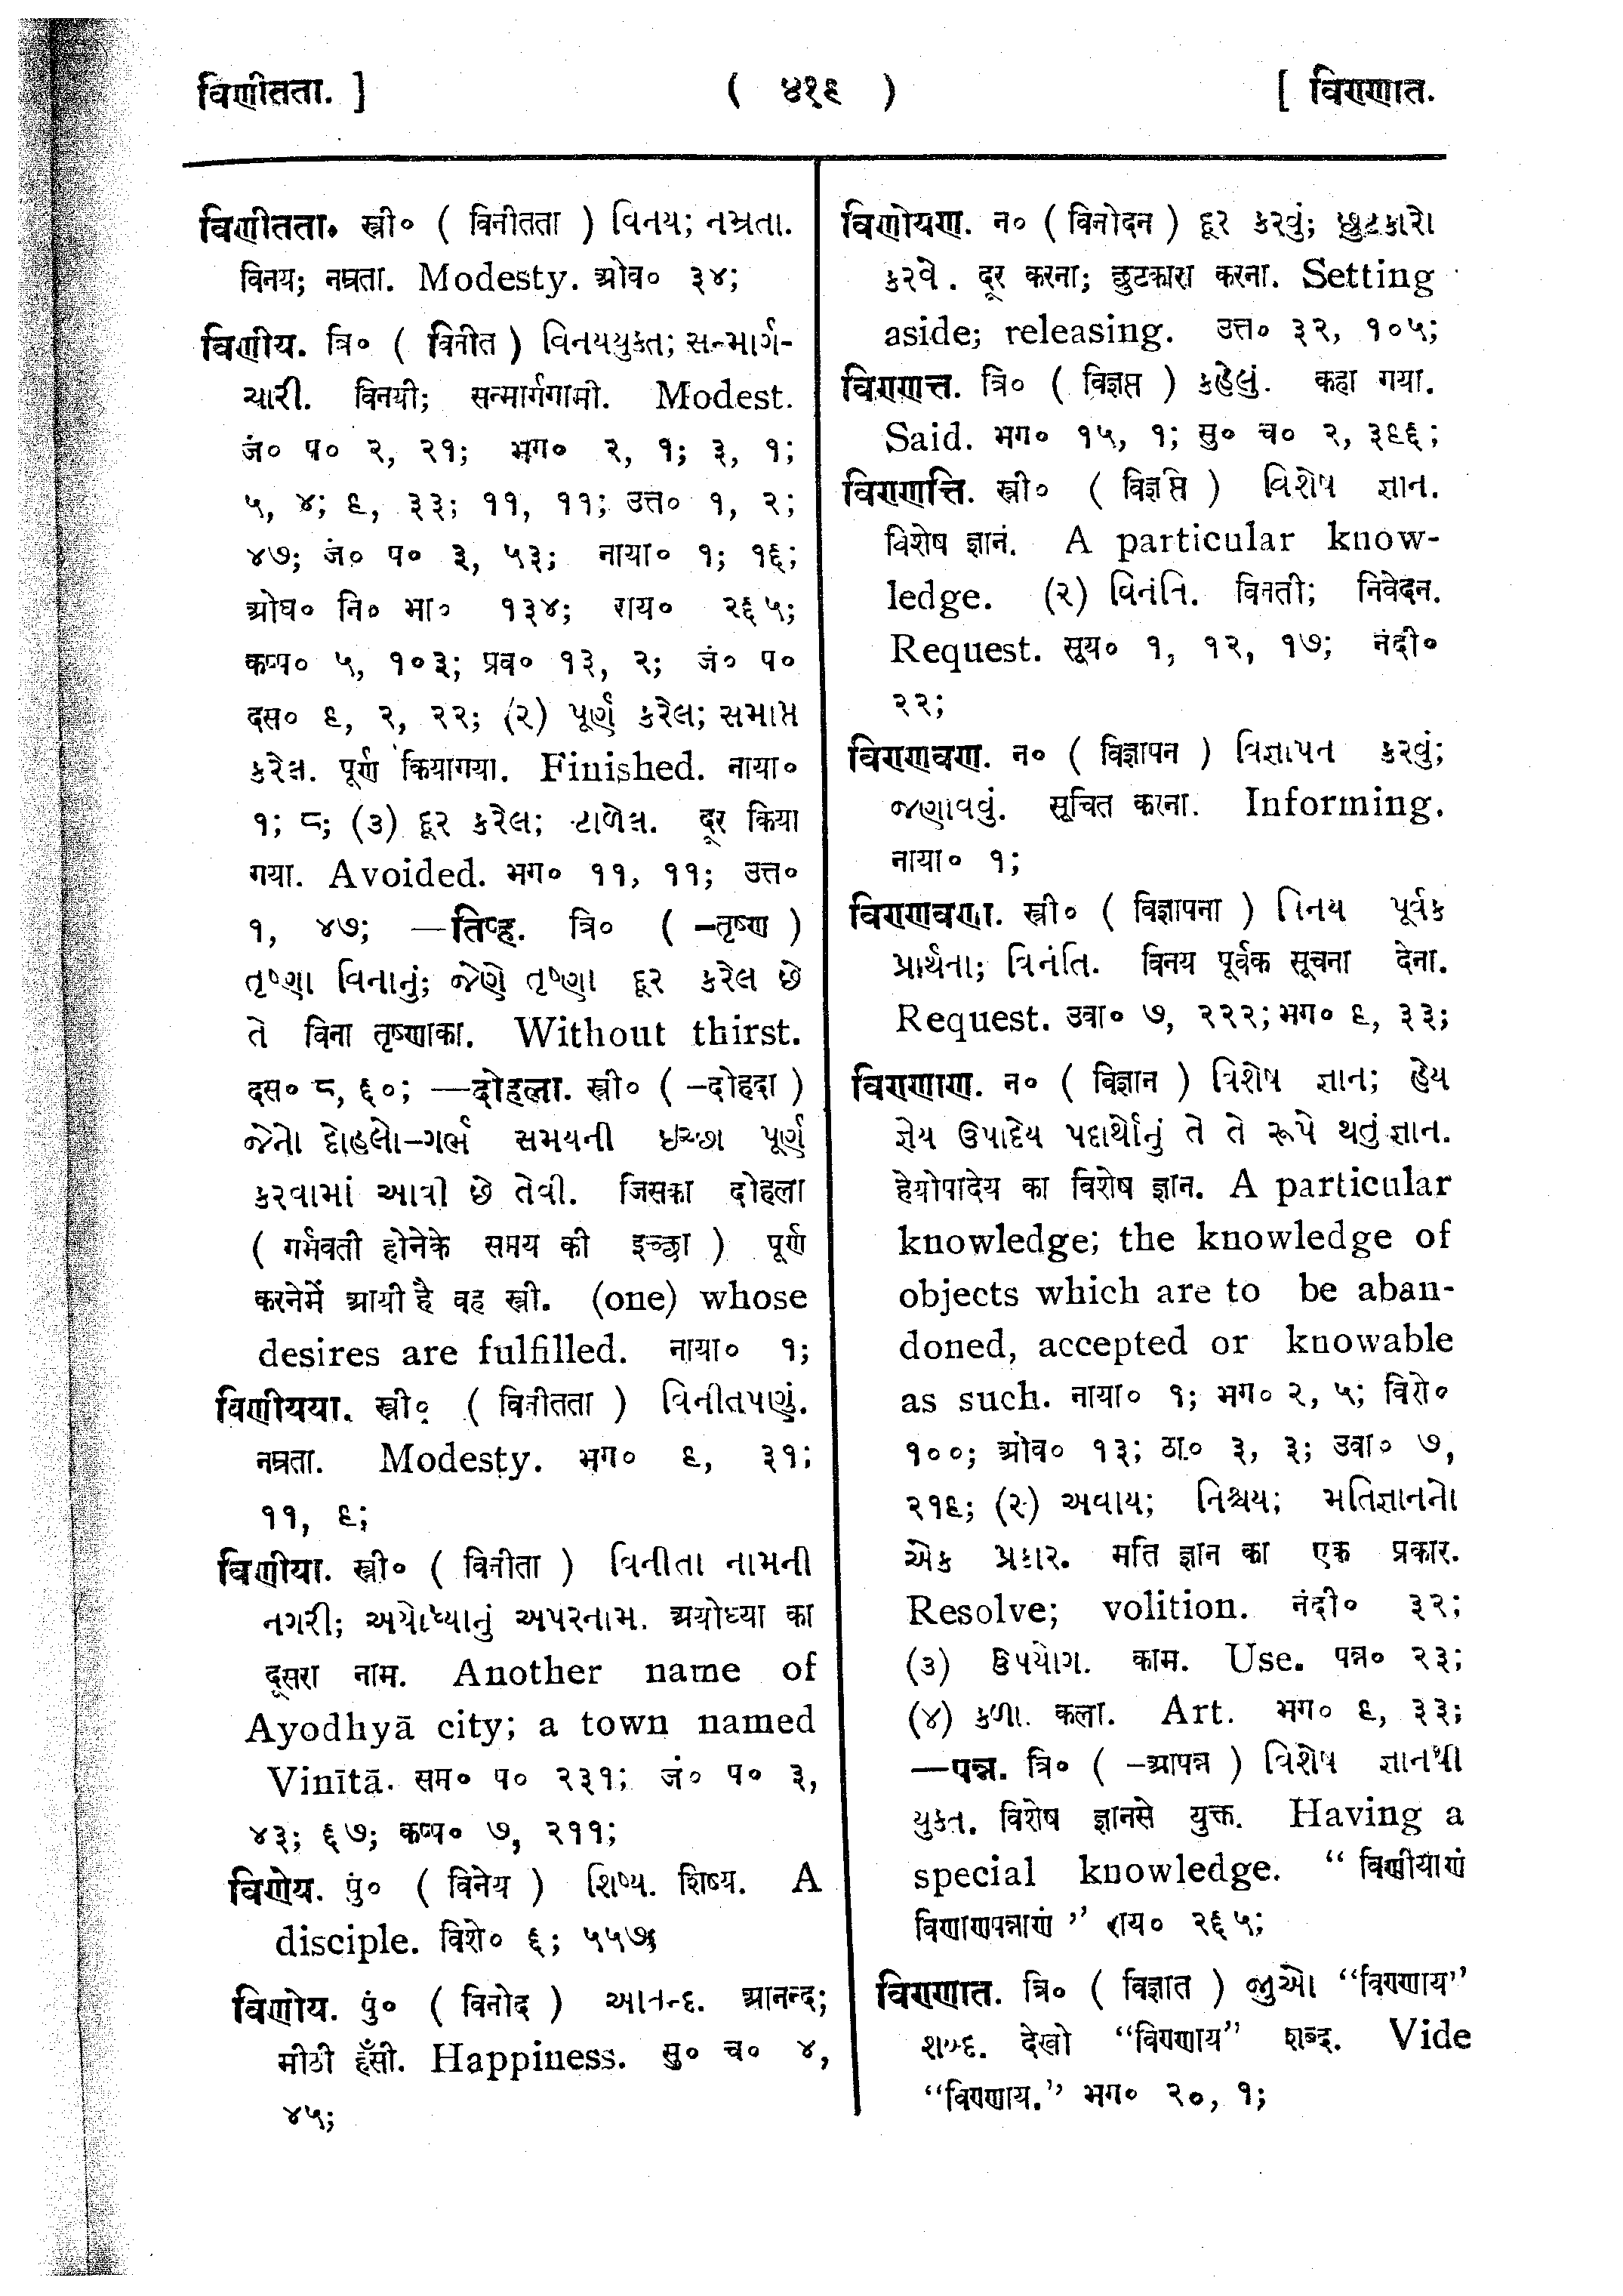 विणीतता. ]
( ४१९ )
[ विण्णात.
विणीतता. स्त्री० ( विनीतता ) વિનય; નમ્રતા.
विनय; नम्रता. Modesty. ओव० ३४;
विणीय. त्रि० ( विनीत ) વિનયયુક્ત; સન્માર્ગ-
ચારી. विनयी; सन्मार्गगामी. Modest.
जं० प० २, २१; भग० २, १; ३, १;
५, ४; ९, ३३; ११, ११; उत्त० १, २;
४७; जं० प० ३, ५३; नाया० १; १६;
ओघ० नि० भा० १३४; राय० २६५;
कप्प० ५, १०३; प्रव० १३, २; जं० प०
दस० ९, २, २२; (२) પૂર્ણ કરેલ; સમાપ્ત
કરેલ. पूर्ण कियागया. Finished. नाया०
१; ८; (३) દૂર કરેલ; ટાળેલ. दूर किया
गया. Avoided. भग० ११, ११; उत्त०
१, ४७; —तिण्ह. त्रि० ( -तृष्ण )
તૃષ્ણા વિનાનું; જેણે તૃષ્ણા દૂર કરેલ છે
તે विना तृष्णाका. Without thirst.
दस० ८, ६०; —दोहला. स्त्री० ( -दोहदा )
જેનો દોહલો-ગર્ભ સમયની ઇચ્છા પૂર્ણ
કરવામાં આવી છે તેવી. जिसका दोहला
( गर्भवती होनेके समय की इच्छा ) पूर्ण
करनेमें आयी है वह स्त्री. (one) whose
desires are fulfilled. नाया० १;
विणीयया. स्त्री० ( विनीतता ) વિનીતપણું.
नम्रता. Modesty. भग० ९, ३१;
११, ९;
विणीया. स्त्री० ( विनीता ) વિનીતા નામની
નગરી; અયોધ્યાનું અપરનામ. अयोध्या का
दूसरा नाम. Another name of
Ayodhyā city; a town named
Vinītā. सम० प० २३१; जं० प० ३,
४३; ६७; कप्प० ७, २११;
विणेय. पुं० ( विनेय ) શિષ્ય. शिष्य. A
disciple. विशे० ६; ५५७;
विणोय. पुं० ( विनोद ) આનન્દ. आनन्द;
मीठी हँसी. Happiness. सु० च० ४,
४५;
विणोयण. न० ( विनोदन ) દૂર કરવું; છુટકારો
કરવે . दूर करना; छुटकारा करना. Setting
aside; releasing. उत्त० ३२, १०५;
विण्णत्त. त्रि० ( विज्ञप्त ) કહેલું. कहा गया.
Said. भग० १५, १; सु० च० २, ३९६;
विण्णत्ति. स्त्री० ( विज्ञप्ति ) વિશેષ જ્ઞાન.
विशेष ज्ञानं. A particular know-
ledge. (२) વિનંતિ. विनती; निवेदन.
Request. सूय० १, १२, १७; नंदी०
२२;
विण्णवण. न० ( विज्ञापन ) વિજ્ઞાપન કરવું;
જણાવવું. सूचित करना. Informing.
नाया० १;
विण्णवणा. स्त्री० ( विज्ञापना ) વિનય પૂર્વક
પ્રાર્થના; વિનંતિ. विनय पूर्वक सूचना देना.
Request. उवा० ७, २२२; भग० ९, ३३;
विण्णाण. न० ( विज्ञान ) વિશેષ જ્ઞાન; હેય
જ્ઞેય ઉપાદેય પદાર્થોનું તે તે રૂપે થતું જ્ઞાન.
हेयोपादेय का विशेष ज्ञान. A particular
knowledge; the knowledge of
objects which are to be aban-
doned, accepted or knowable
as such. नाया० १; भग० २, ५; विशे०
१००; ओव० १३; ठा० ३, ३; उवा० ७,
२१९; (२) અવાય; નિશ્ચય; મતિજ્ઞાનનો
એક પ્રકાર. मति ज्ञान का एक प्रकार.
Resolve; volition. नंदी० ३२;
(३) ઉપયોગ. काम. Use. पन्न० २३;
(४) કળા. कला. Art. भग० ९, ३३;
—पन्न. त्रि० ( -आपन्न ) વિશેષ જ્ઞાનથી
યુક્ત. विशेष ज्ञानसे युक्त. Having a
special knowledge. “ विणीयाणं
विणाणपन्नाणं ” राय० २६५;
विण्णात. त्रि० ( विज्ञात ) જુઓ “विण्णाय”
શબ્દ. देखो “विण्णाय” शब्द. Vide
“विण्णाय.” भग० २०, १;